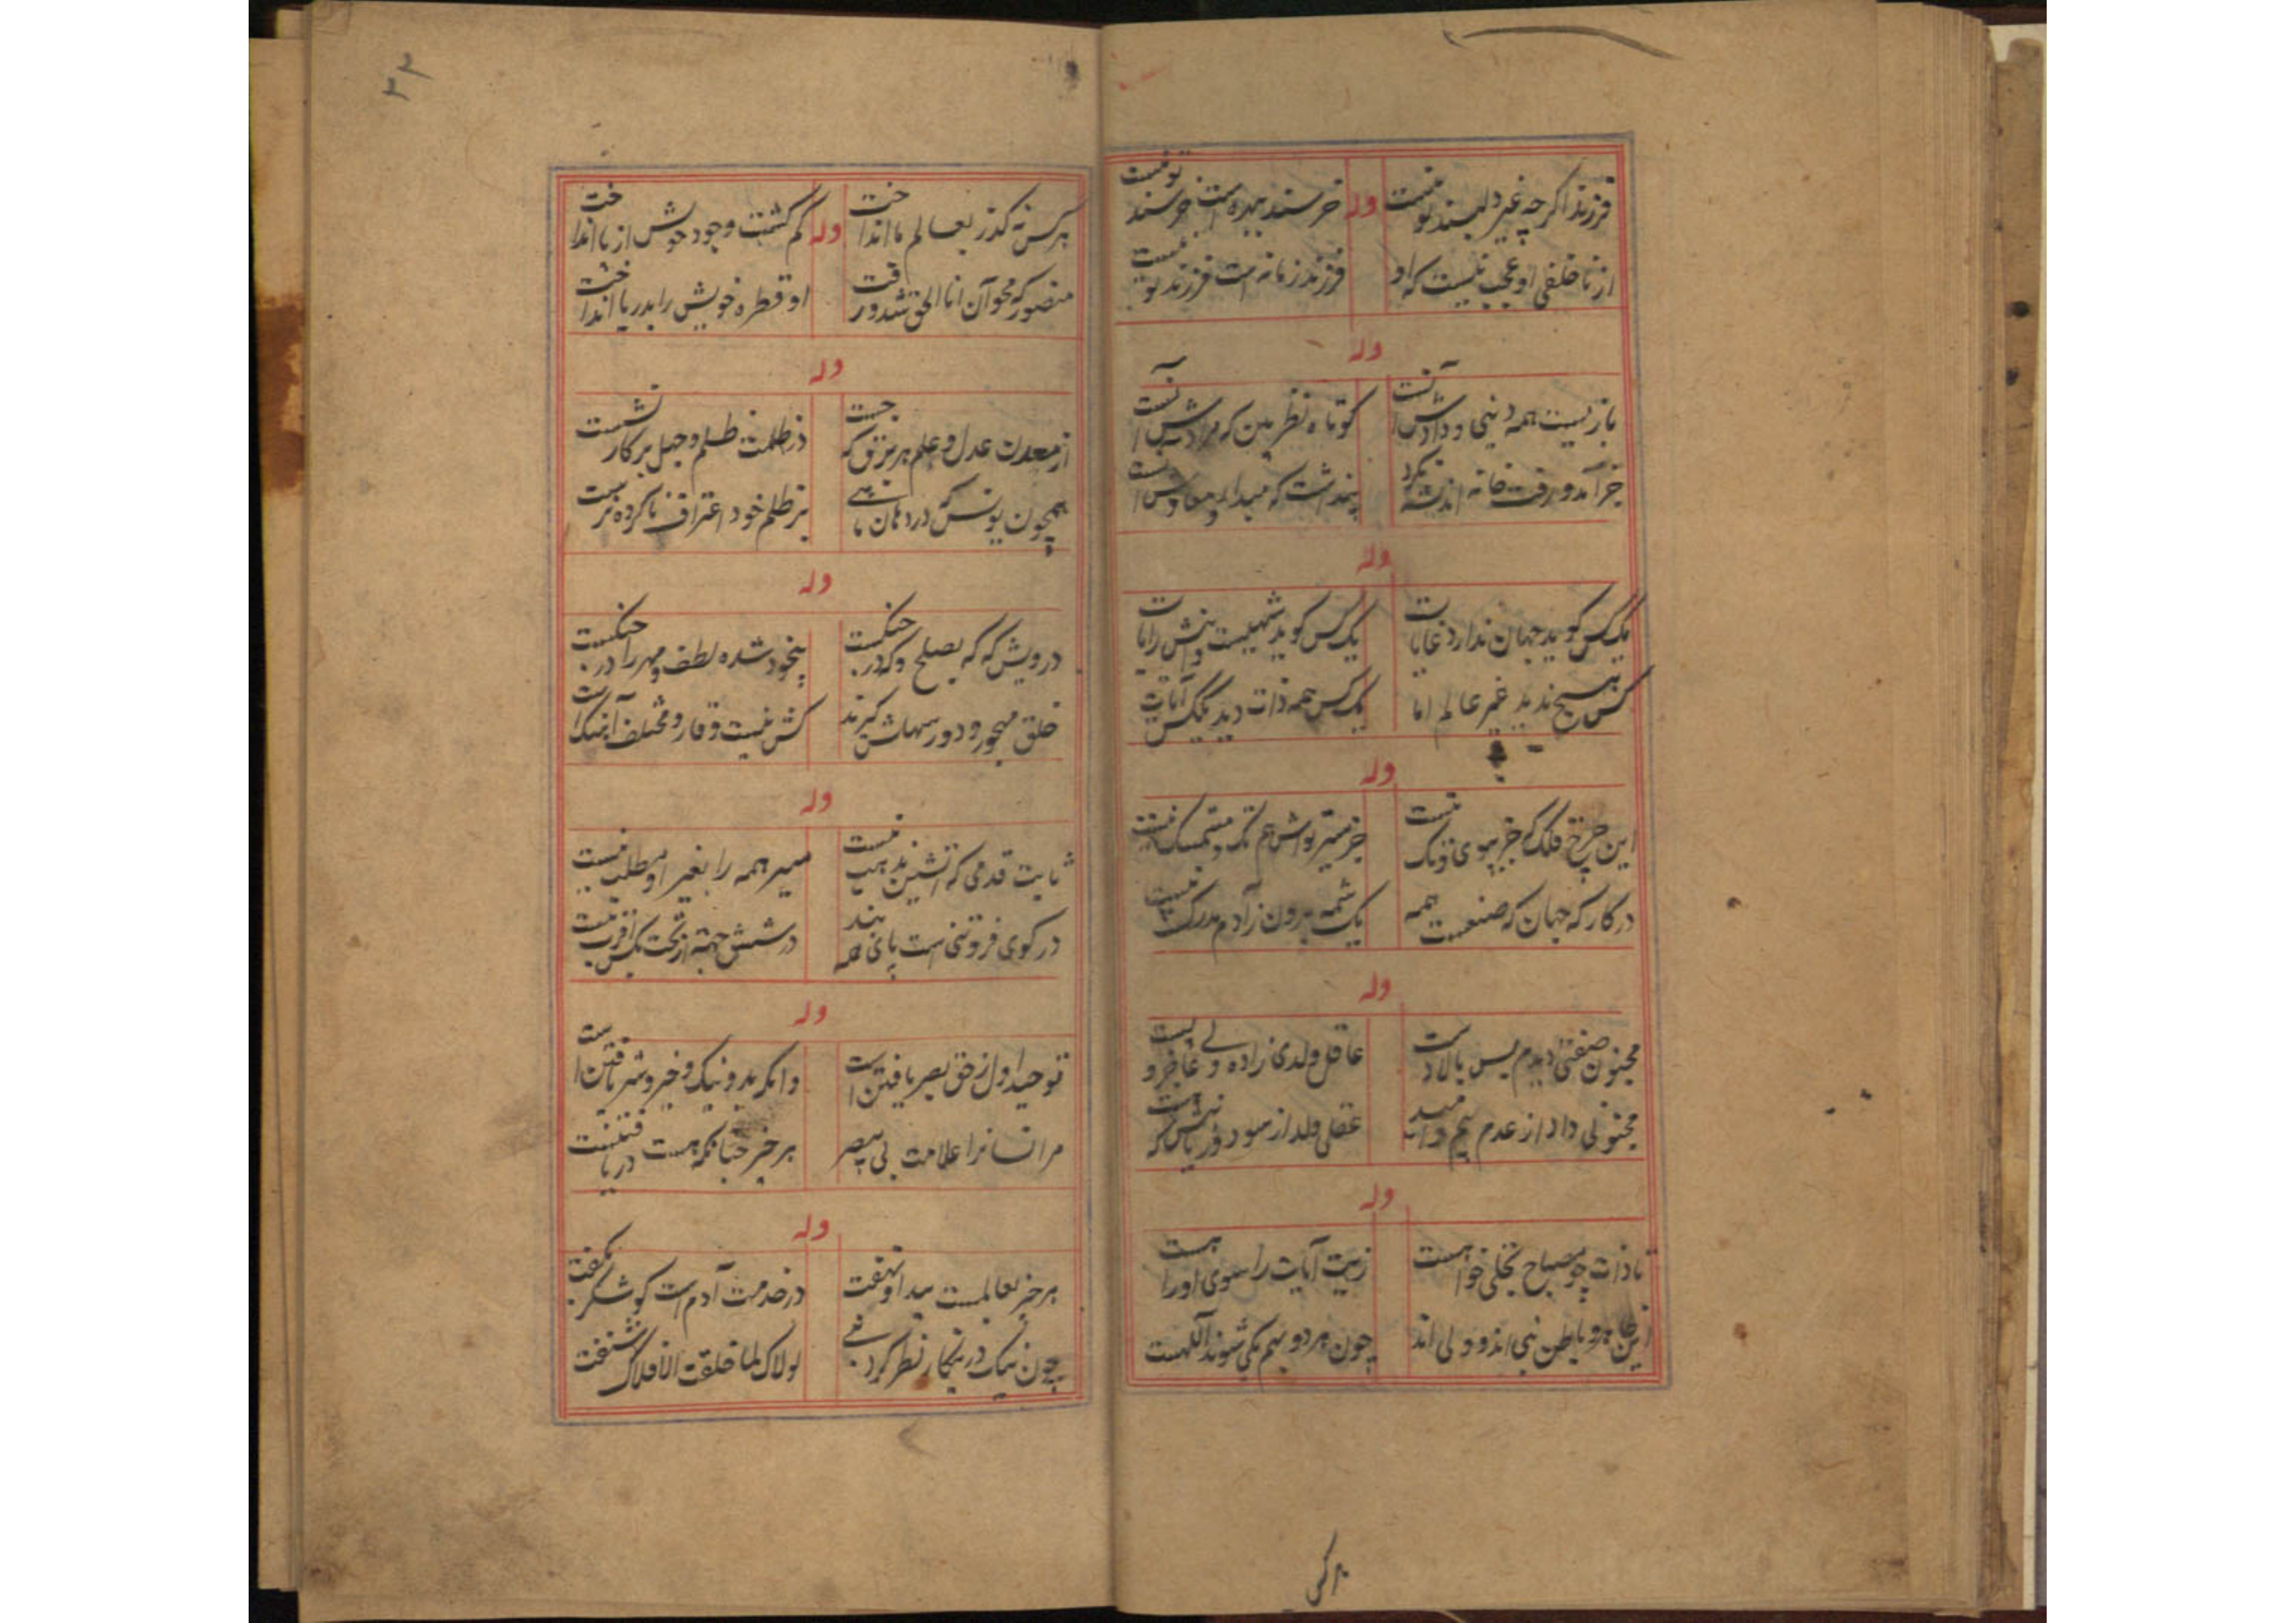 فرزند اگرچه غیر دلبند تو نیست
وله
خرسند بپدهاست خرسند تو نیست
از ناخلفی او عجب نیست که او
فرزند زمانه است فرزند تو نیست
وله
بازیست همه دنیی و دادش آنست
کوتاه نظر بین که مرادش آنست
خر آمد و رفت خانه اندیشه نکرد
پنداشت که مبدا و معادش آنست
وله
یک کس گوید جهان ندارد غایات
یک کس گوید شهیست دانش رایات
کس هیچ ندید غیر عالم اما
یک کس همه ذات دید یک کس آیات
وله
این چرخ فلک که جز بپوی تو تک نیست
جز سیر تواش هم تک و مستمسک نیست
در کارگه جهان که صنعست همه
یک شمه برون ز آدم مدرک نیست
وله
مجنون صفتی دیدم پس بالادست
عاقل ولدی زاده ولی عاجز و پست
مجنونی داد از عدم بیم و امید
عقلی ولد از سود و زیانش که
وله
تا ذات چو مصباح تجلی خواهست
زیت آیات را سوی او را هست
این ظاهر و باطن نبی اند و ولی اند
چون هر دو بهم یکی شوند اللهست
برکس
۲۲
هر کس که گذر بعالم ما انداخت
وله
گم گشت وجود خویش از ما انداخت
منصور که محو آن انا الحق شد و رفت
او قطره خویش را بدریا انداخت
وله
از معدلت عدل و علم هر نزق که جست
در ظلمت ظلم و جهل برکار نشست
همچون یونس که در دهان ماهی
بر ظلم خود اعتراف ناکرده نرست
وله
درویش که که بصلح و که در جنگست
بیخود شده لطف و مهر را در جنگست
خلق مهجور و دور سهلش گیرند
کش نیست وقار و مختلف آهنگست
وله
ثابت قدمی که آتشین مذهب نیست
سیر همه را بغیر او مطلب نیست
در کوی فروتنی است پای همه بند
در شش جهة از تحت یکی اقرب نیست
وله
توحید اول ز حق بصر یافتن است
وانگه بد و نیک و خیر و شر یافتن است
مر انسانرا علامت بی بصر
هر خیر چنانکه هست دریافتنست
وله
هر خیر بعالمست پیدا و نهفت
در خدمت آدم است کو شکر بگفت
چون نیک در نیکار نظر کرد نبی
لولاک لما خلقت الافلاک شنفت